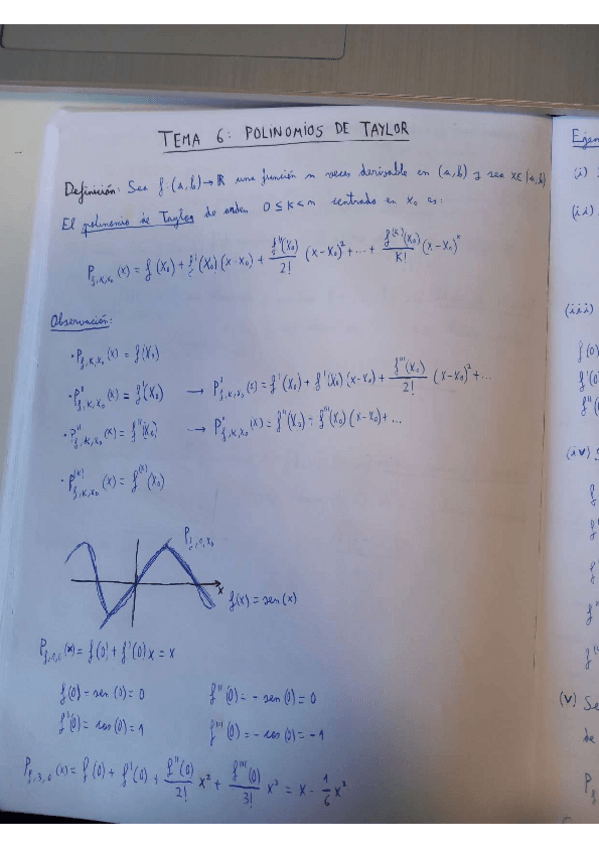 TEMA 6: POLINOMIOS DE TAYLOR
Definición: Sea f:(a,b)→R una función n veces derivable en (a,b) y sea x∈(a,b)
El polinomio de Taylor de orden 0≤K<n centrado en x₀ es:
P_{f,K,x₀}(x) = f(x₀) + f'(x₀)(x-x₀) + f''(x₀)/2! (x-x₀)² + ... + f^{(K)}(x₀)/K! (x-x₀)^K
Observación:
· P_{f,K,x₀}(x) = f(x₀)
· P'_{f,K,x₀}(x) = f'(x₀) → P'_{f,K,x₀}(x) = f'(x₀) + f''(x₀)(x-x₀) + f'''(x₀)/2! (x-x₀)² + ...
· P''_{f,K,x₀}(x) = f''(x₀) → P''_{f,K,x₀}(x) = f''(x₀) + f'''(x₀)(x-x₀) + ...
· P^{(K)}_{f,K,x₀}(x) = f^{(K)}(x₀)
x
f(x) = sen(x)
P_{f,1,0}(x) = f(0) + f'(0)x = x
f(0) = sen(0) = 0 f''(0) = - sen(0) = 0
f'(0) = cos(0) = 1 f'''(0) = - cos(0) = -1
P_{f,3,0}(x) = f(0) + f'(0) + f''(0)/2! x² + f'''(0)/3! x³ = x - 1/6 x³
Ejem
(i)
(ii)
(iii)
f(0)
f'(0)
f''(
(iv)
f
f
f
f''
(v) Se
de
P